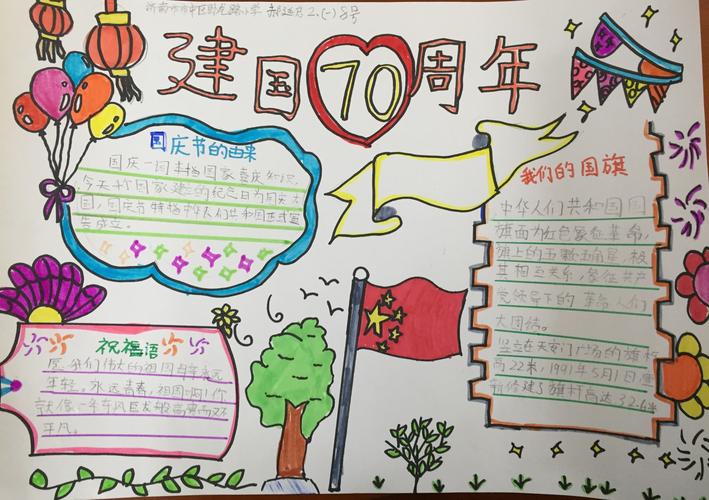 济南市市中区卧龙路小学 2.(一) 8号
建国70周年
国庆节的由来
国庆一词本指国家喜庆
今天称国家建立的纪念日为国庆
国庆节特指中华人们共和国正式宣
告成立。
我们的国旗
中华人们共和国国
旗面为红色象征革命,
旗上的五颗五角星,
其相互关系,象征共产
党领导下的革命人们
大团结。
竖立在天安门广场的旗杆
高22米,1991年5月1日
新修建了旗杆高达32.6米
祝福语
愿我们伟大的祖国母亲永远
年轻,永远青春,祖国
就像一年东风巨龙般富裕而又不
平凡。